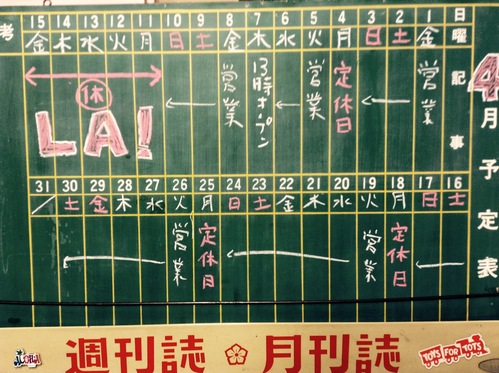 4月予定表
日曜
記事
1 2 3 4 5 6 7 8 9 10 11 12 13 14 15
金 土 日 月 火 水 木 金 土 日 月 火 水 木 金
営業
定休日
営業
13時オープン
営業
休
LA!
考
16 17 18 19 20 21 22 23 24 25 26 27 28 29 30 31
土 日 月 火 水 木 金 土 日 月 火 水 木 金 土 /
定休日
営業
定休日
営業
週刊誌 月刊誌
TOYS FOR TOTS